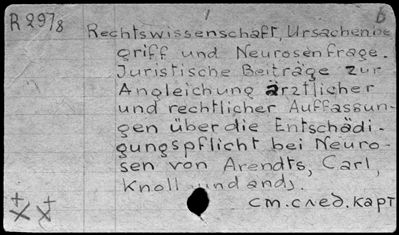 R 297/8 1 6
Rechtswissenschaft, Ursachenbe
griff und Neurosenfrage.
Juristische Beiträge zur
Angleichung ärztlicher
und rechtlicher Auffassun-
gen über die Entschädi-
gungspflicht bei Neuro-
sen von Arendts, Carl,
Knoll und ands.
см. след. карт